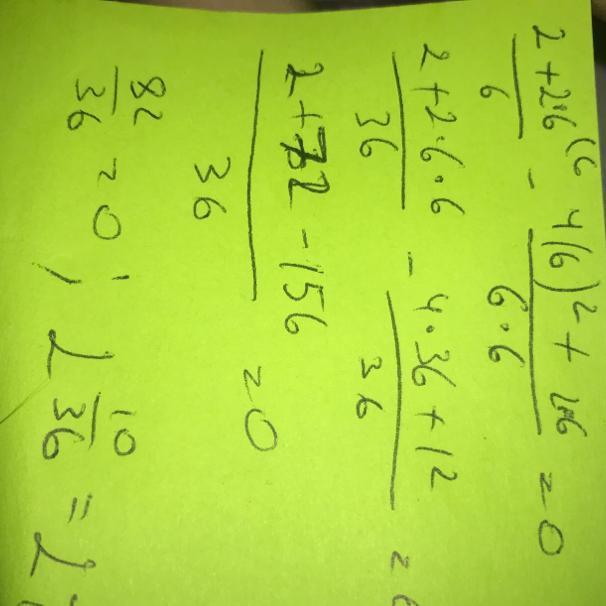 2+2·6(6 / 6 - 4(6)²+2·6 / 6·6 = 0
2+2·6·6 / 36 - 4·36+12 / 36 =
2+72-156 / 36 = 0
82 / 36 = 0 ! 2 10/36 = 2